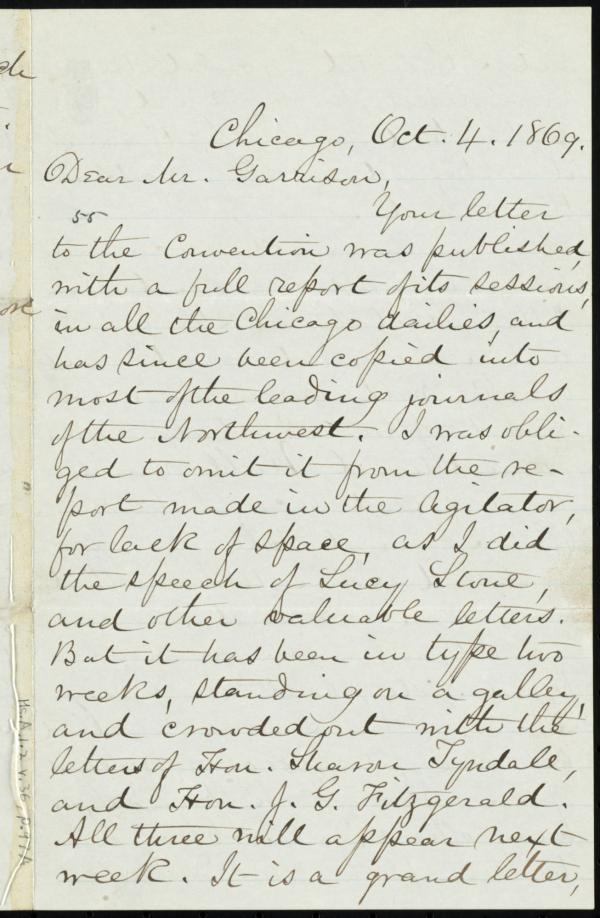 Chicago, Oct. 4. 1869.
Dear Mr. Garrison,
55
Your letter
to the Convention was published,
with a full report of its sessions,
in all the Chicago dailies, and
has since been copied into
most of the leading journals
of the Northwest. I was obli-
ged to omit it from the re-
port made in the Agitator,
for lack of space, as I did
the speech of Lucy Stone,
and other valuable letters.
But it has been in type two
weeks, standing on a galley,
and crowded out with the
letters of Hon. Sharon Tyndale,
and Hon. J. G. Fitzgerald.
All three will appear next
week. It is a grand letter,